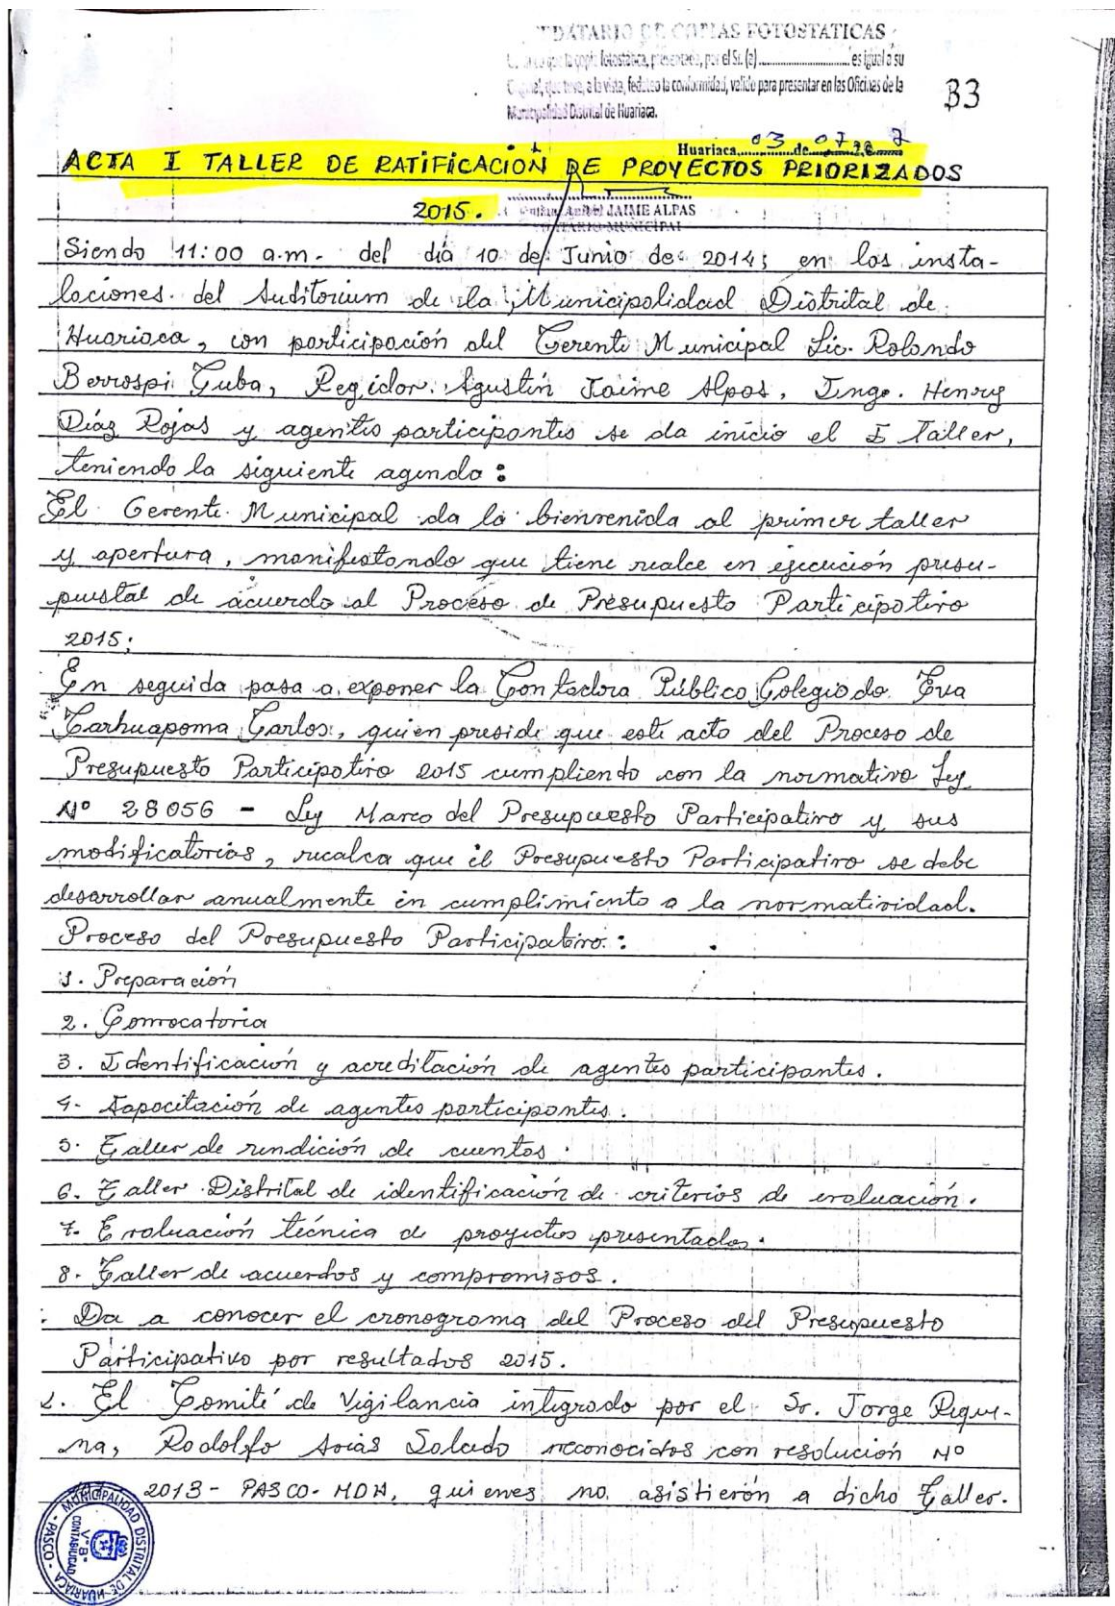 DATARIO DE COPIAS FOTOSTATICAS
que la copia fotostatica, presentada, por el Sr. (a) ........................ es igual a su
Original, que tuve, a la vista, fedateo la conformidad, valido para presentar en las Oficinas de la
Municipalidad Distrital de Huariaca.
33
Huariaca, 03 de 07
ACTA I TALLER DE RATIFICACIÓN DE PROYECTOS PRIORIZADOS
2015.
JAIME ALPAS
Siendo 11:00 a.m. del día 10 de Junio de 2014; en las insta-
laciones del Auditorium de la Municipalidad Distrital de
Huariaca, con participación del Gerente Municipal Lic. Rolando
Berrospi Cuba, Regidor. Agustín Jaime Alpas, Ingo. Henry
Díaz Rojas y agentes participantes se da inicio el I Taller,
teniendo la siguiente agenda:
El Gerente Municipal da la bienvenida al primer taller
y apertura, manifestando que tiene realce en ejecución presu-
puestal de acuerdo al Proceso de Presupuesto Participativo
2015;
En seguida pasa a exponer la Contadora Público Colegiado Eva
Carhuapoma Carlos, quien preside que este acto del Proceso de
Presupuesto Participativo 2015 cumpliento con la normativa Ley
Nº 28056 - Ley Marco del Presupuesto Participativo y sus
modificatorias, recalca que el Presupuesto Participativo se debe
desarrollar anualmente en cumplimiento a la normatividad.
Proceso del Presupuesto Participativo:
1. Preparación
2. Convocatoria
3. Identificación y acreditación de agentes participantes.
4. Capacitación de agentes participantes.
5. Taller de rendición de cuentas.
6. Taller Distrital de identificación de criterios de evaluación.
7. Evaluación técnica de proyectos presentados.
8. Taller de acuerdos y compromisos.
. Da a conocer el cronograma del Proceso del Presupuesto
Participativo por resultados 2015.
2. El Comité de Vigilancia integrado por el Sr. Jorge Reque-
na, Rodolfo Arias Salcedo reconocidos con resolución Nº
2013 - PASCO - MDH, quienes no asistierón a dicho Taller.
MUNICIPALIDAD DISTRITAL DE HUARIACA - PASCO -
VºBº
CONTABILIDAD